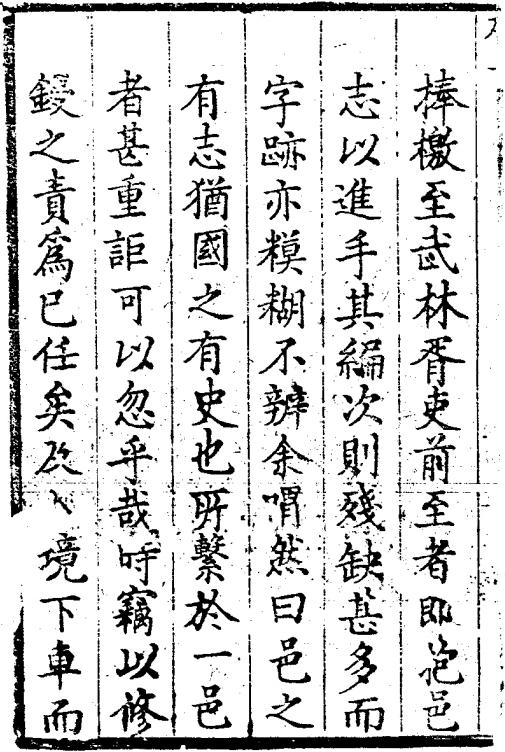 棒檄至武林胥吏前至者即袍邑
志以進手其編次則殘缺甚多而
字跡亦糢糊不辨余喟然曰邑之
有志猶國之有史也所繫於一邑
者甚重詎可以忽乎哉時竊以修
鋟之責爲已任矣及入境下車而